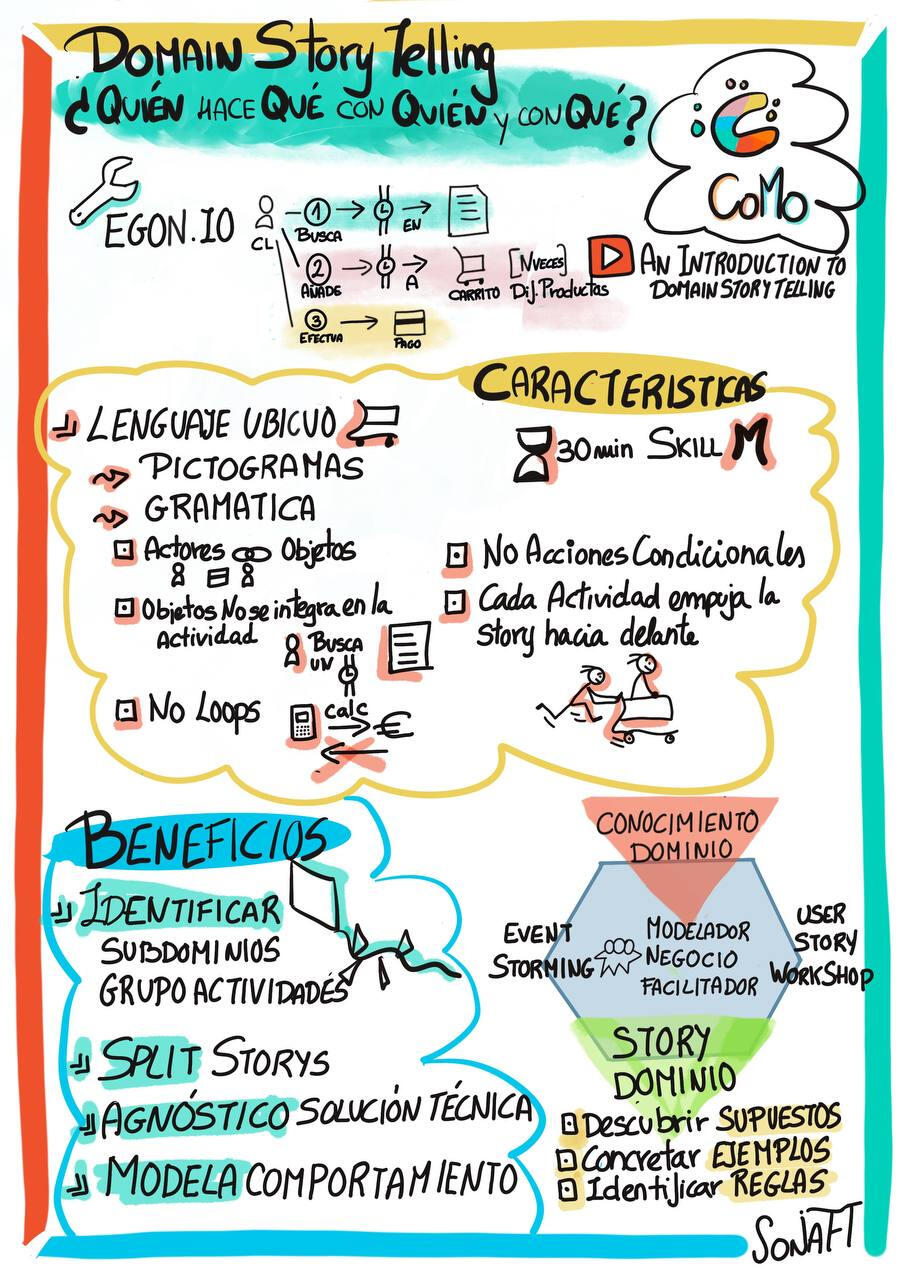 DOMAIN Story Telling
¿QUIÉN HACE QUÉ CON QUIÉN y CON QUÉ?
CoMo
EGON.IO
CL
1
BUSCA
EN
2
AÑADE
A
CARRITO
[N VECES]
Dif. Productos
3
EFECTUA
PAGO
AN INTRODUCTION TO
DOMAIN STORY TELLING
CARACTERISTICAS
LENGUAJE UBICUO
PICTOGRAMAS
GRAMATICA
Actores Objetos
Objetos No se integra en la
Actividad
BUSCA
UN
No Loops
calc
€
30 min SKILL M
No Acciones Condicionales
Cada Actividad empuja la
Story hacia delante
BENEFICIOS
IDENTIFICAR
SUBDOMINIOS
GRUPO ACTIVIDADES
SPLIT STORYS
AGNÓSTICO SOLUCIÓN TÉCNICA
MODELA COMPORTAMIENTO
CONOCIMIENTO
DOMINIO
EVENT
STORMING
MODELADOR
NEGOCIO
FACILITADOR
USER
STORY
WORKSHOP
STORY
DOMINIO
Descubrir SUPUESTOS
Concretar EJEMPLOS
Identificar REGLAS
SONIAFT